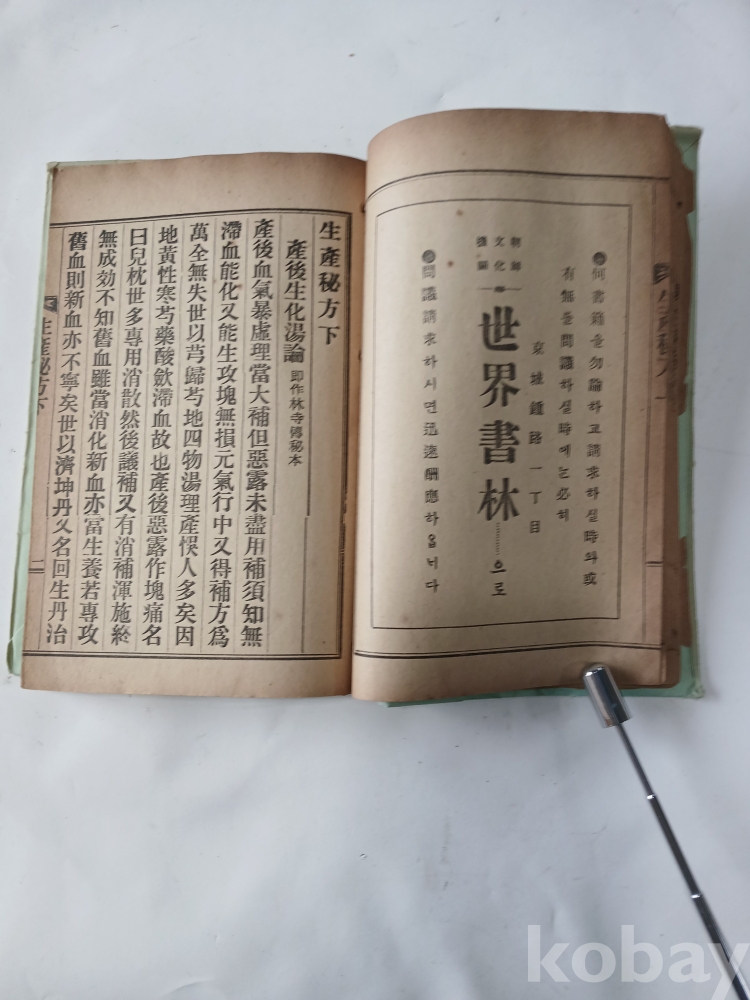 何書籍을勿論하고請求하실時와或
有無를問議하실時에는必히
京城鍾路一丁目
朝鮮
文化
機關
世界書林……으로
問議請求하시면迅速酬應하옵니다
生產秘方下
產後生化湯論 即作林寺傳秘本
產後血氣暴虛理當大補但惡露未盡用補須知無
滯血能化又能生攻塊無損元氣行中又得補方爲
萬全無失世以芎歸芍地四物湯理產悞人多矣因
地黃性寒芍藥酸斂滯血故也產後惡露作塊痛名
曰兒枕世多專用消散然後議補又有消補渾施終
無成効不知舊血雖當消化新血亦當生養若專攻
舊血則新血亦不寧矣世以濟坤丹又名回生丹治
生產秘方下
二
kobay